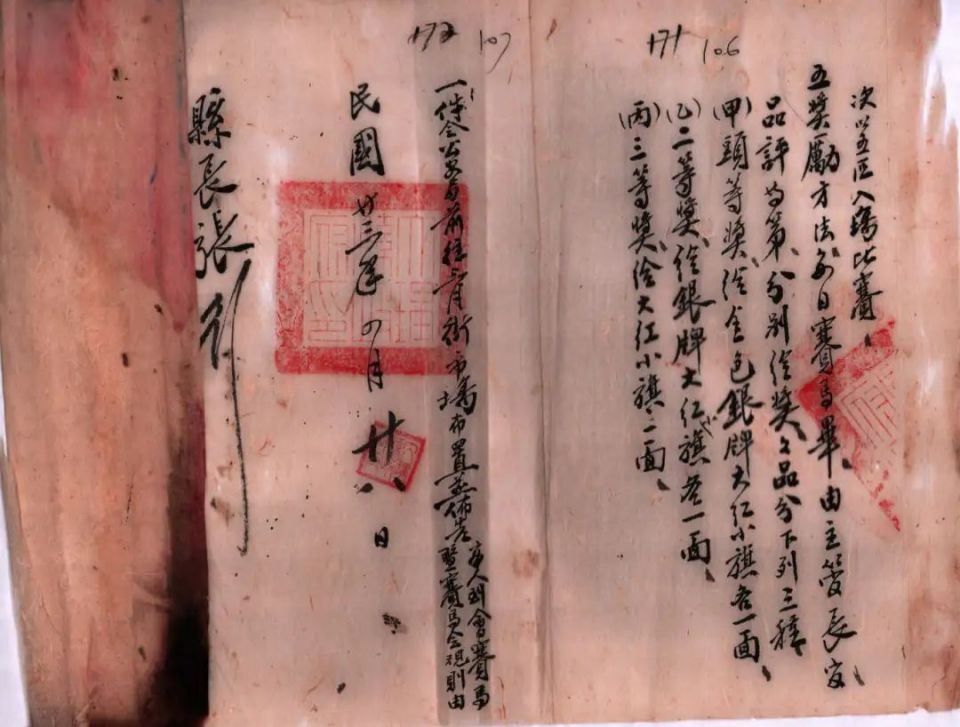 171 106
決以五區入場比賽、
五獎勵方法、每日賽馬畢、由主管長官
品評等第、分別給獎、獎品分下列三種
(甲)頭等獎、給金色銀牌大紅小旗各一面、
(乙)二等獎、給銀牌大紅旗各一面、
(丙)三等獎、給大紅小旗一面、
172 107
一件令公安局前往三月街市場布置並佈告商人到會賽馬
暨賽馬會規則由
民國廿三年四月廿八日
縣長張